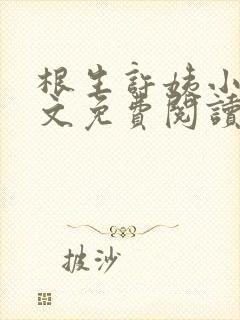 根生許姨小
文免費閱讀
披沙